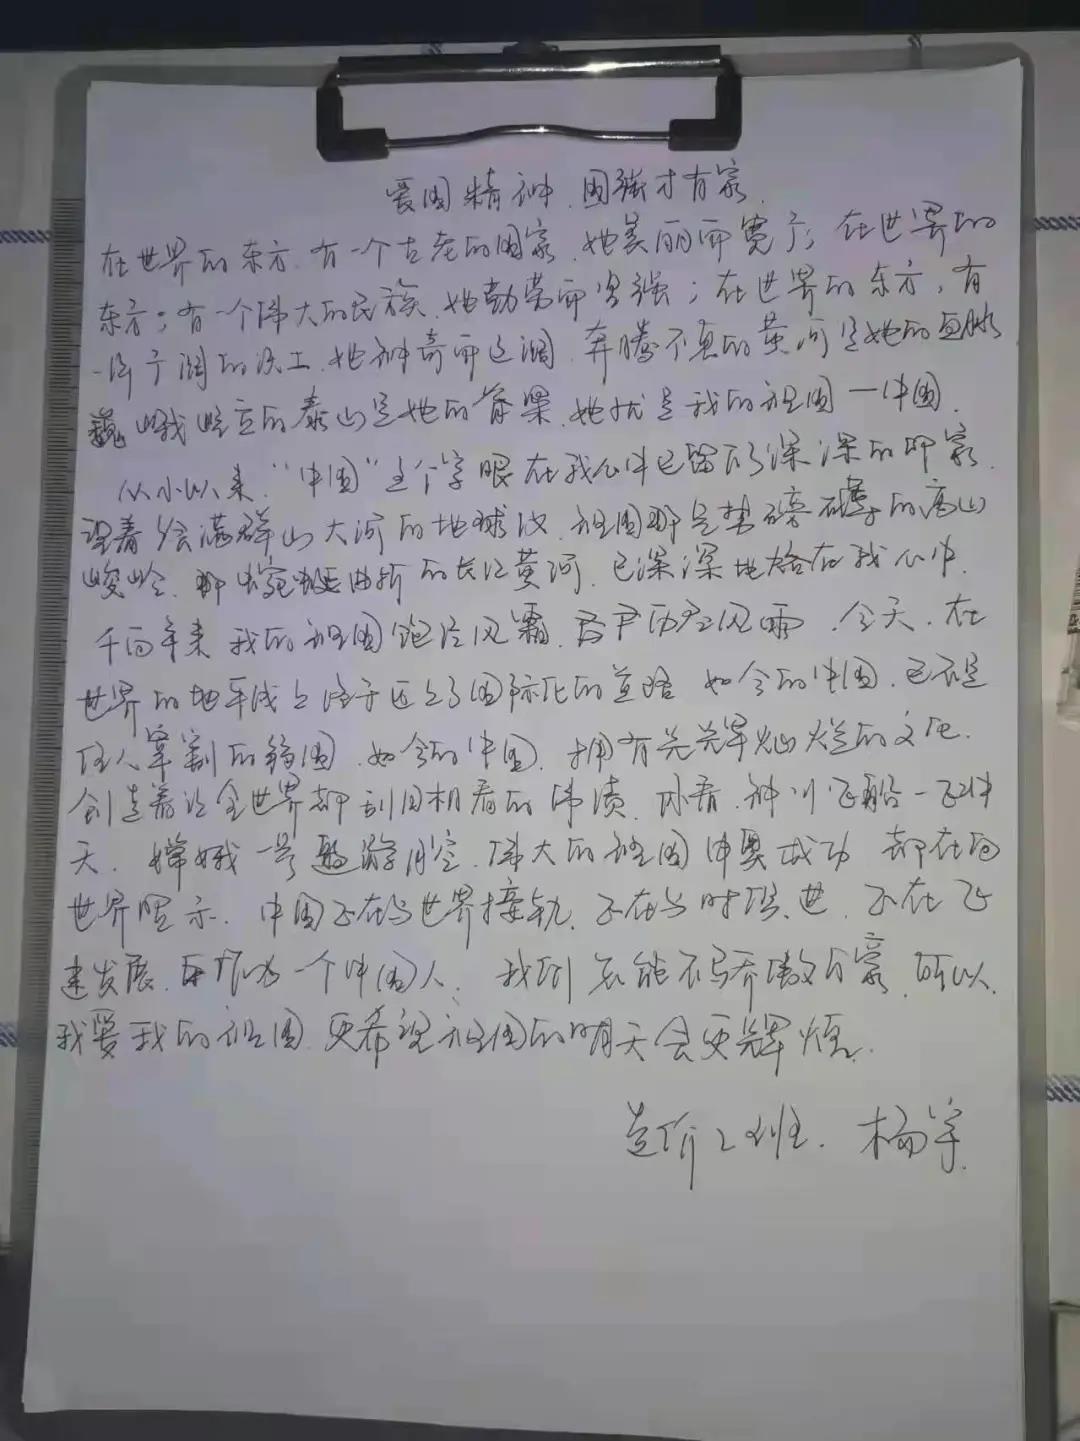 爱国精神,国强才有家.
在世界的东方.有一个古老的国家,她美丽而宽广;在世界的
东方;有一个伟大的民族,她勤劳而坚强;在世界的东方,有
一片广阔的沃土.她神奇而辽阔.奔腾不息的黄河是她的血脉
巍峨屹立的泰山是她的脊梁.她就是我的祖国一中国.
从小以来,"中国"这个字眼在我心中已留下了深深的印象.
望着绘满群山大河的地球仪.祖国那是势磅礴的高山
峻岭.那蜿蜒曲折的长江黄河.已深深地烙在我心中.
千百年来我的祖国饱经风霜,历尽风雨.今天,在
世界的地平线上终于迈上了国际化的道路 如今的中国,已不是
任人宰割的弱国.如今的中国,拥有光辉灿烂的文化.
创造着让全世界都刮目相看的伟绩.你看.神州飞船一飞冲
天.嫦娥一号遨游月空.伟大的祖国申奥成功 都在向
世界昭示.中国正在与世界接轨,正在与时俱进,正在飞
速发展.身为一个中国人.我们怎能不骄傲自豪.所以.
我爱我的祖国.更希望祖国的明天会更辉煌.
造价2班.杨宇